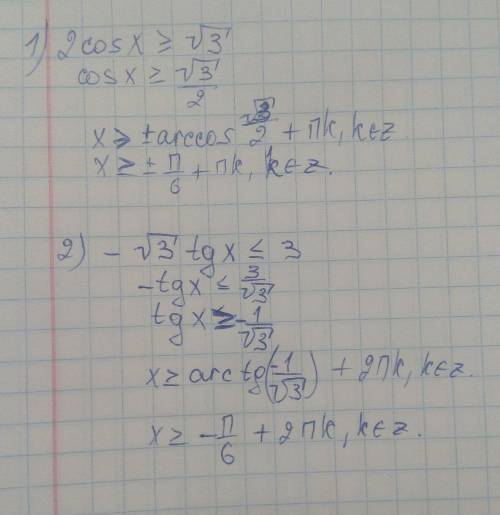 1) 2cosx ≥ √3
cosx ≥ √3/2
x ≥ ±arccos √3/2 + πk, k∈z
x ≥ ± π/6 + πk, k∈z.
2) - √3 tgx ≤ 3
-tgx ≤ 3/√3
tgx ≥ -1/√3
x ≥ arctg(-1/√3) + 2πk, k∈z.
x ≥ - π/6 + 2πk, k∈z.